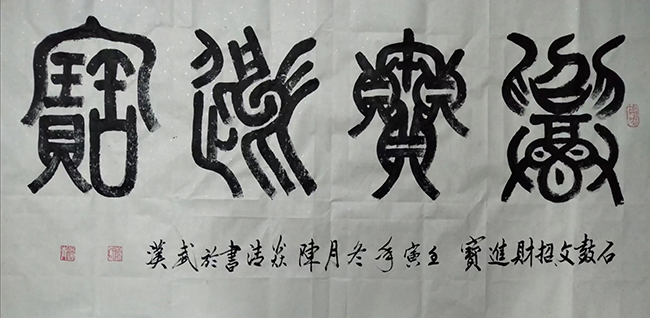 招財進寶
石鼓文招財進寶 壬寅年冬月陳焱清書於武漢